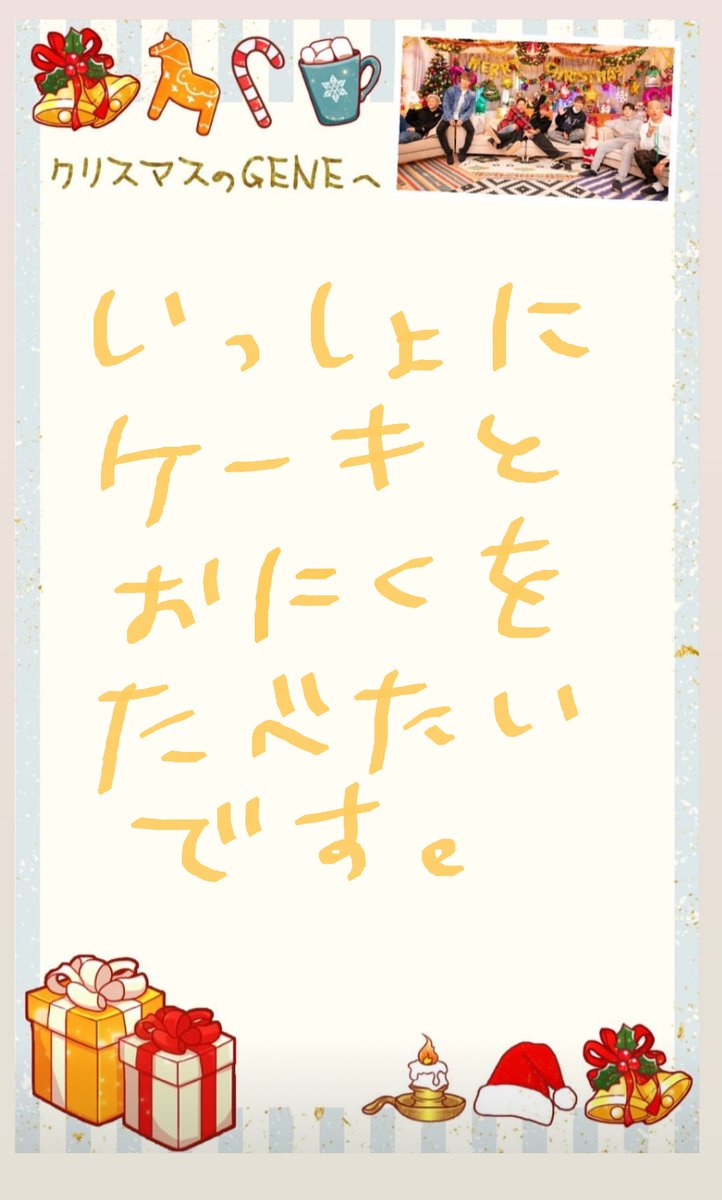 MERRY CHRISTMAS
クリスマスのGENEへ
いっしょに
ケーキと
おにくを
たべたい
です。